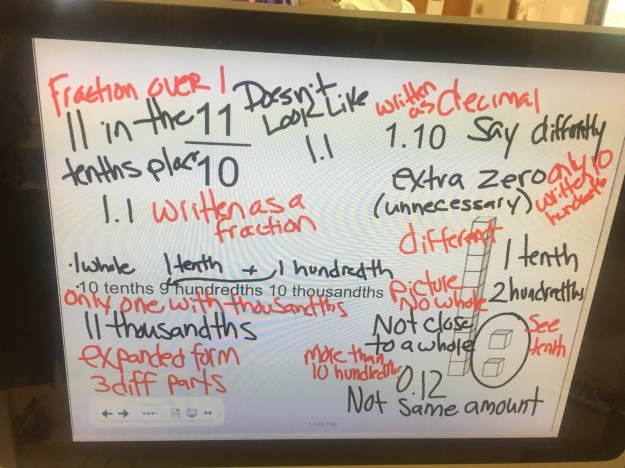 Fraction over 1
11 in the
tenths place
11
10
1.1 written as a
fraction
Doesn't
Look Like
1.1
written
as decimal
1.10 say differently
extra zero
(unnecessary)
only 10
written
hundredths
1 whole 1 tenth + 1 hundredth
10 tenths 9 hundredths 10 thousandths
only one with thousandths
11 thousandths
expanded form
3 diff parts
different
picture
No whole
Not close
to a whole
1 tenth
2 hundredths
See
tenth
more than
10 hundredths
0.12
Not same amount